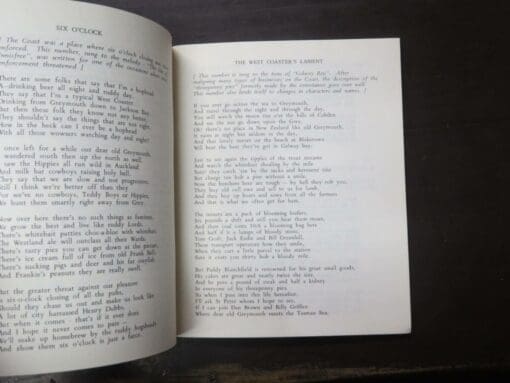 SIX O'CLOCK
[ The Coast was a place where six o'clock closing
enforced. This number, sung to the melody of
Innisfree", was written for one of the occasions when
enforcement threatened. ]
There are some folks that say that I'm a hophead
A-drinking beer all night and ruddy day,
They say that I'm a typical West Coaster
Drinking from Greymouth down to Jackson Bay,
But then these folk they know not any better,
They shouldn't say the things that are not right,
How in the heck can I ever be a hophead
With all those wowsers watching day and night?
I once left for a while our dear old Greymouth
wandered south then up the north as well,
I saw the Hippies all run wild in Auckland
And milk bar cowboys raising holy hell.
They say that we are slow and not progressive,
Still I think we're better off than they
For we're no cowboys, Teddy Boys or Hippies,
We hunt them smartly right away from Grey.
Now over here there's no such things as famine,
We grow the best and live like ruddy Lords,
There's whitebait, trout
The Westland ale will outclass all their Wards.
There's tasty pies you can get down at the
There's ice cream full of ice from old Frank Bell,
There's sucking pigs and deer and his fat oxyliet
And Frankie's peanuts they are really swell.
But the greater threat against our pleasure
a six-o-clock closing of all the pubs,
Should they chase us out and make us look like
A lot of city harrassed Henry Dubbs,
But when it comes – that's if it ever does
And I hope it never comes to pass –
We'll make up homebrew by the ruddy hogsheads
And show them six o'clock is just a farce.
THE WEST COASTER'S LAMENT
[ This number is sung to the tune of "Galway Bay". After
maligning many types of businesses on the Coast, the description of the
"threepenny pies" formerly made by the entertainer goes over well.
This number also lends itself to changes in characters and names. ]
If you ever go across the sea to Greymouth,
And travel through the night and through the day,
You will watch the moon rise o'er the hills of Cobden
And see the sun go down upon the Grey.
Oh! there's no place in New Zealand like old Greymouth,
It rains at night but seldom in the day,
And that lovely sunset on the beach at Blaketown
Will beat the best they've got in Galway bay.
Just to see again the ripples of the trout streams
And watch the whitebait shoaling by the mile
Sure! they catch 'em by the sacks and kerosene tins
But charge ten bob a pint without a smile.
Now the butchers here are tough – by hell they rob you,
They buy old cull ewes and sell to us for lamb,
And they buy up boars and sows from all the farmers
And that is what we often get for ham.
The grocers are a pack of blooming loafers,
Six pounds a shift and still you hear them moan,
And then coal costs 10/6 a blooming bag here
And half of it is a lumps of bloody stone.
Tom Croft, Jack Rothe and Bill Greendall,
These transport operators how they smile,
When they cart a little parcel to the station
Sure it costs you thirty bob a bloody mile.
But Paddy Blanchfield is renowned for his great small goods,
His cakes are great and nearly twice the size,
And he puts a pound of steak and half a kidney
In everyone of his threepenny pies
So when I pass into this life hereafter,
I'll ask St Peter whom I hope to see,
If I can join Dan Brown and Billy Griffen
Where dear old Greymouth meets the Tasman Sea.